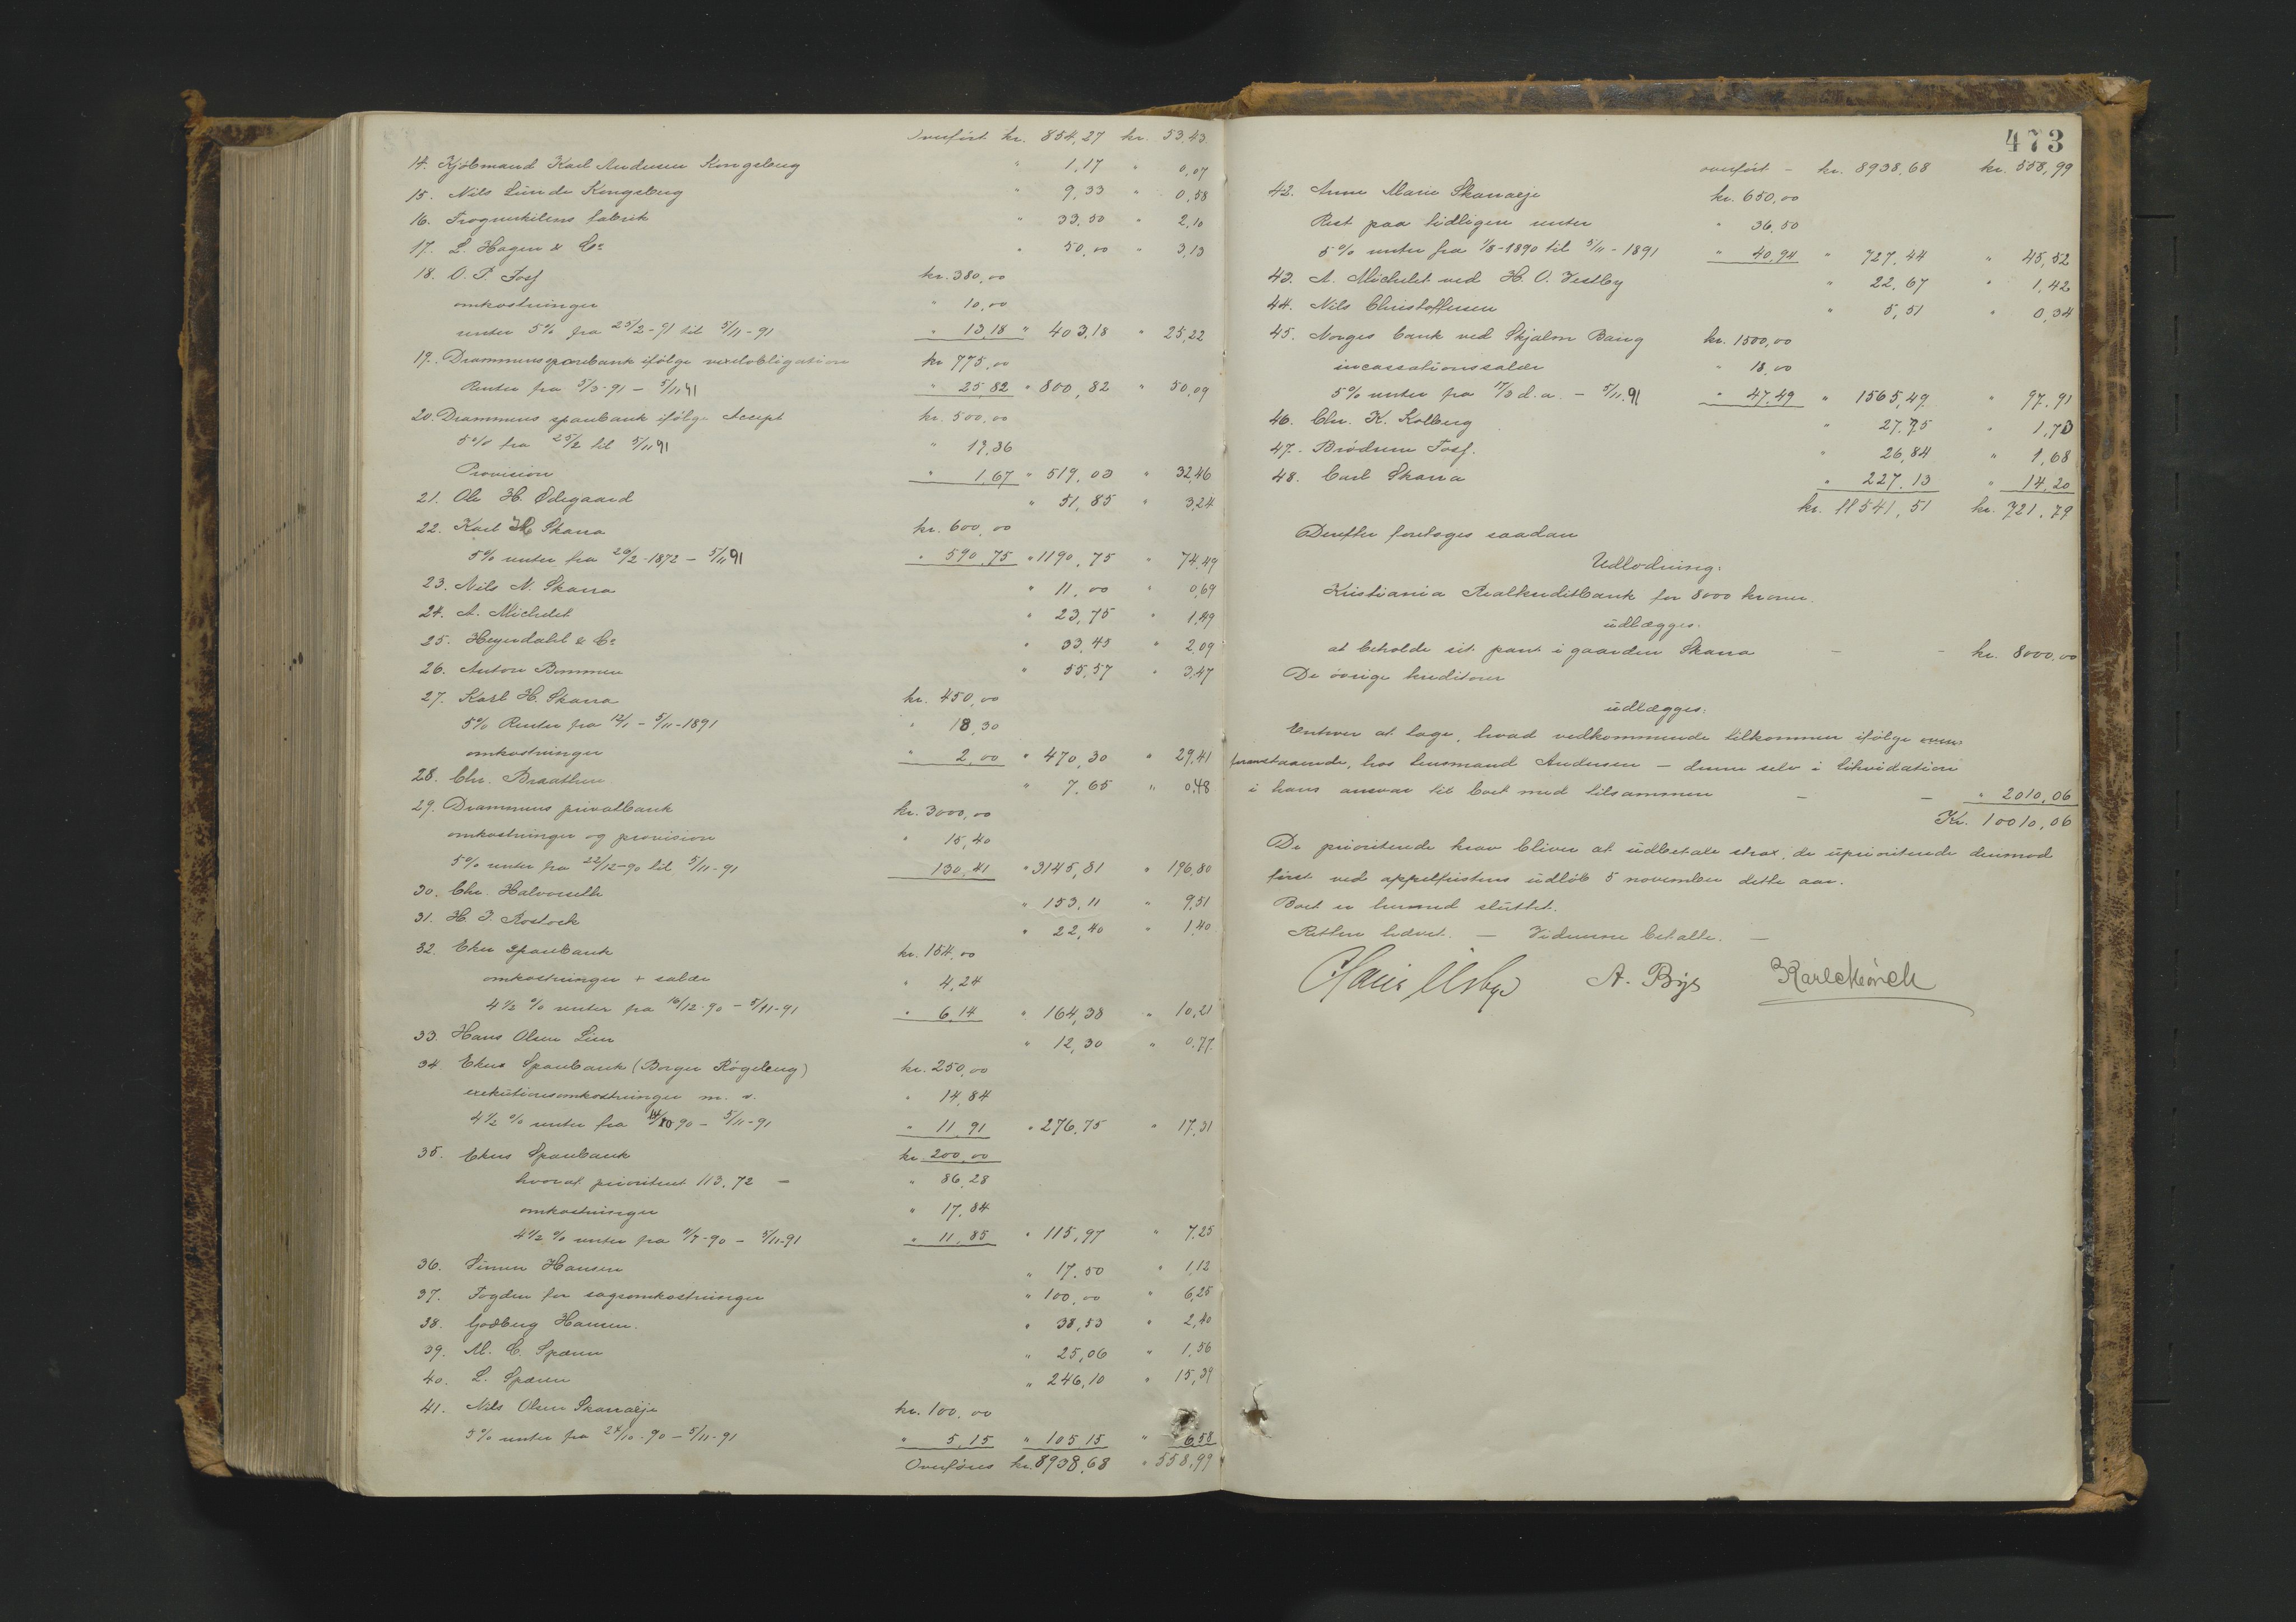 Overført kr. 854,27 kr. 53,43
14. Kjøbmand Karl Andersen Kongsberg " 1,17 " 0,07
15. Nils Lunde Kongsberg " 9,33 " 0,58
16. Frognerkilens fabrik " 33,50 " 2,10
17. L. Hagen & Co " 50,00 " 3,13
18. O. P. Fosf kr. 380,00
omkostninger " 10,00
renter 5% fra 25/2-91 til 5/11-91 " 13,18 " 403,18 " 25,22
19. Drammens sparebank ifølge vexelobligation kr 775,00
Renter fra 5/3-91 - 5/11 91 " 25,82 " 800,82 " 50,09
20. Drammens sparebank ifølge Accept kr. 500,00
5% fra 25/2 til 5/11 91 " 17,36
Provision " 1,67 " 519,03 " 32,46
21. Ole H. Ødegaard " 51,85 " 3,24
22. Karl H. Skara kr. 600,00
5% renter fra 20/2-1872 - 5/11 91 " 590,75 " 1190,75 " 74,49
23. Nils N. Skara " 11,00 " 0,69
24. A. Michelet " 23,75 " 1,49
25. Heyerdahl & Co " 33,45 " 2,09
26. Anton Bommen " 55,57 " 3,47
27. Karl H. Skara kr. 450,00
5% Renter fra 12/1 - 5/11-1891 " 18,30
omkostninger " 2,00 " 470,30 " 29,41
28. Chr. Braathen " 7,65 " 0,48
29. Drammens privatbank kr. 3000,00
omkostninger og provision " 15,40
5% renter fra 22/12-90 til 5/11-91 130,41 " 3145,81 " 196,80
30. Chr. Halvorseth " 153,11 " 9,51
31. H. J. Rostock " 22,40 " 1,40
32. Eker sparebank kr. 154,00
omkostninger + salær " 4,24
4 1/2 % renter fra 16/12-90 - 5/11-91 " 6,14 " 164,38 " 10,21
33. Hans Olsen Lien " 12,30 " 0,77
34. Ekers Sparebank (Borger Røgeberg) kr. 250,00
exekutionsomkostninger m. v. " 14,84
4 1/2 % renter fra 14/10 90 - 5/11-91 " 11,91 " 276,75 " 17,31
35. Ekers Sparebank kr. 200,00
hvoraf prioritert 113,72 - " 86,28
omkostninger " 17,84
4 1/2 % renter fra 11/7-90 - 5/11-91 " 11,85 " 115,97 " 7,25
36. Simen Hansen " 17,50 " 1,12
37. Fogden for sagsomkostninger " 100,00 " 6,25
38. Godberg Hansen. " 38,53 " 2,40
39. M. C. Spæren " 25,06 " 1,56
40. L. Spæren " 246,10 " 15,39
41. Nils Olsen Skaraeje kr. 100,00
5% renter fra 24/10-90 - 5/11-91 " 5,15 " 105,15 " 6,58
Overføres kr. 8938,68 " 558,99
473
overført - kr. 8938,68 kr. 558,99
42. Anne Marie Skaraeje kr. 650,00
Rest paa tidligere renter " 36,50
5% renter fra 1/8-1890 til 5/11-1891 " 40,94 " 727,44 " 45,52
43. A. Michelet ved H. O. Vestby " 22,67 " 1,42
44. Nils Christoffersen " 5,51 " 0,34
45. Norges bank ved Skjalm Bang kr. 1500,00
incassationssalær " 18,00
5% renter fra 17/3 d.a. - 5/11.91 " 47,49 " 1565,49 " 97,91
46. Chr. K. Kolberg " 27,75 " 1,73
47. Brødrene Fosf. " 26,84 " 1,68
48. Carl Skara " 227,13 " 14,20
kr. 11541,51 kr. 721,79
Derefter foretoges saadan
Udlodning:
Kristiania Realkreditbank for 8000 kroner.
udlægges:
at beholde sit pant i gaarden Skara - - kr. 8000,00
De øvrige kreditorer
udlægges:
Enhver at tage, hvad vedkommende tilkommer ifølge oven
foranstaaende, hos lensmand Andersen - denne selv i likvidation
i hans ansvar til boet med tilsammen - - " 2010,06
Kr. 10010,06
De prioriterede krav bliver at udbetale strax, de uprioriterede derimod
først ved appelfristens udløb 5 november dette aar.
Boet er hermed sluttet.
Retten hævet. - Vidnerne betalte. -
A. Bye Karl Mørch